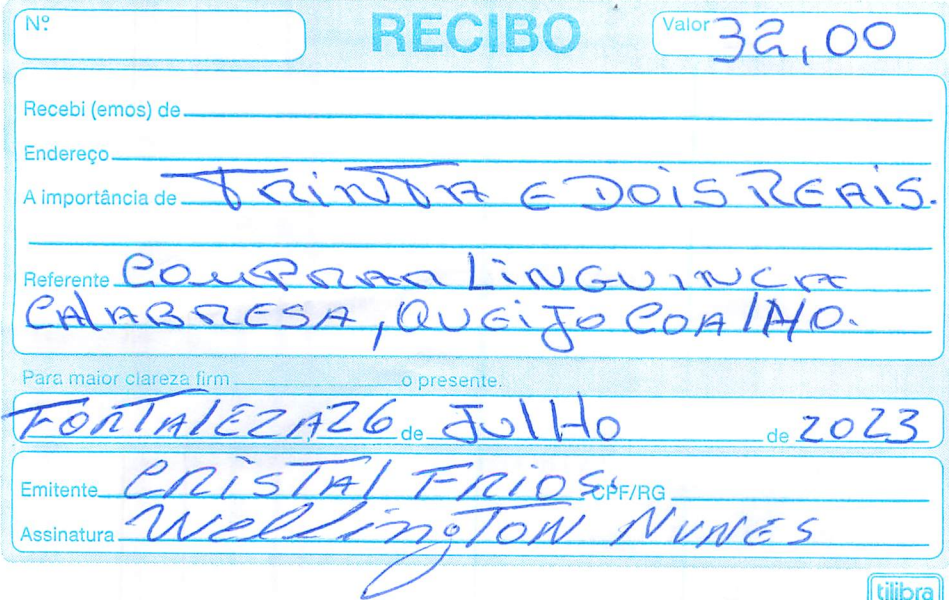 Nº RECIBO Valor 32,00
Recebi (emos) de
Endereço
A importância de TRINTA E DOIS REAIS.
Referente COMPRAR LINGUINCA
CALABRESA, QUEIJO COALHO.
Para maior clareza firm o presente.
FORTALEZA 26 de JULHO de 2023
Emitente CRISTAL FRIOS. CPF/RG
Assinatura Wellington NUNES
tilibra